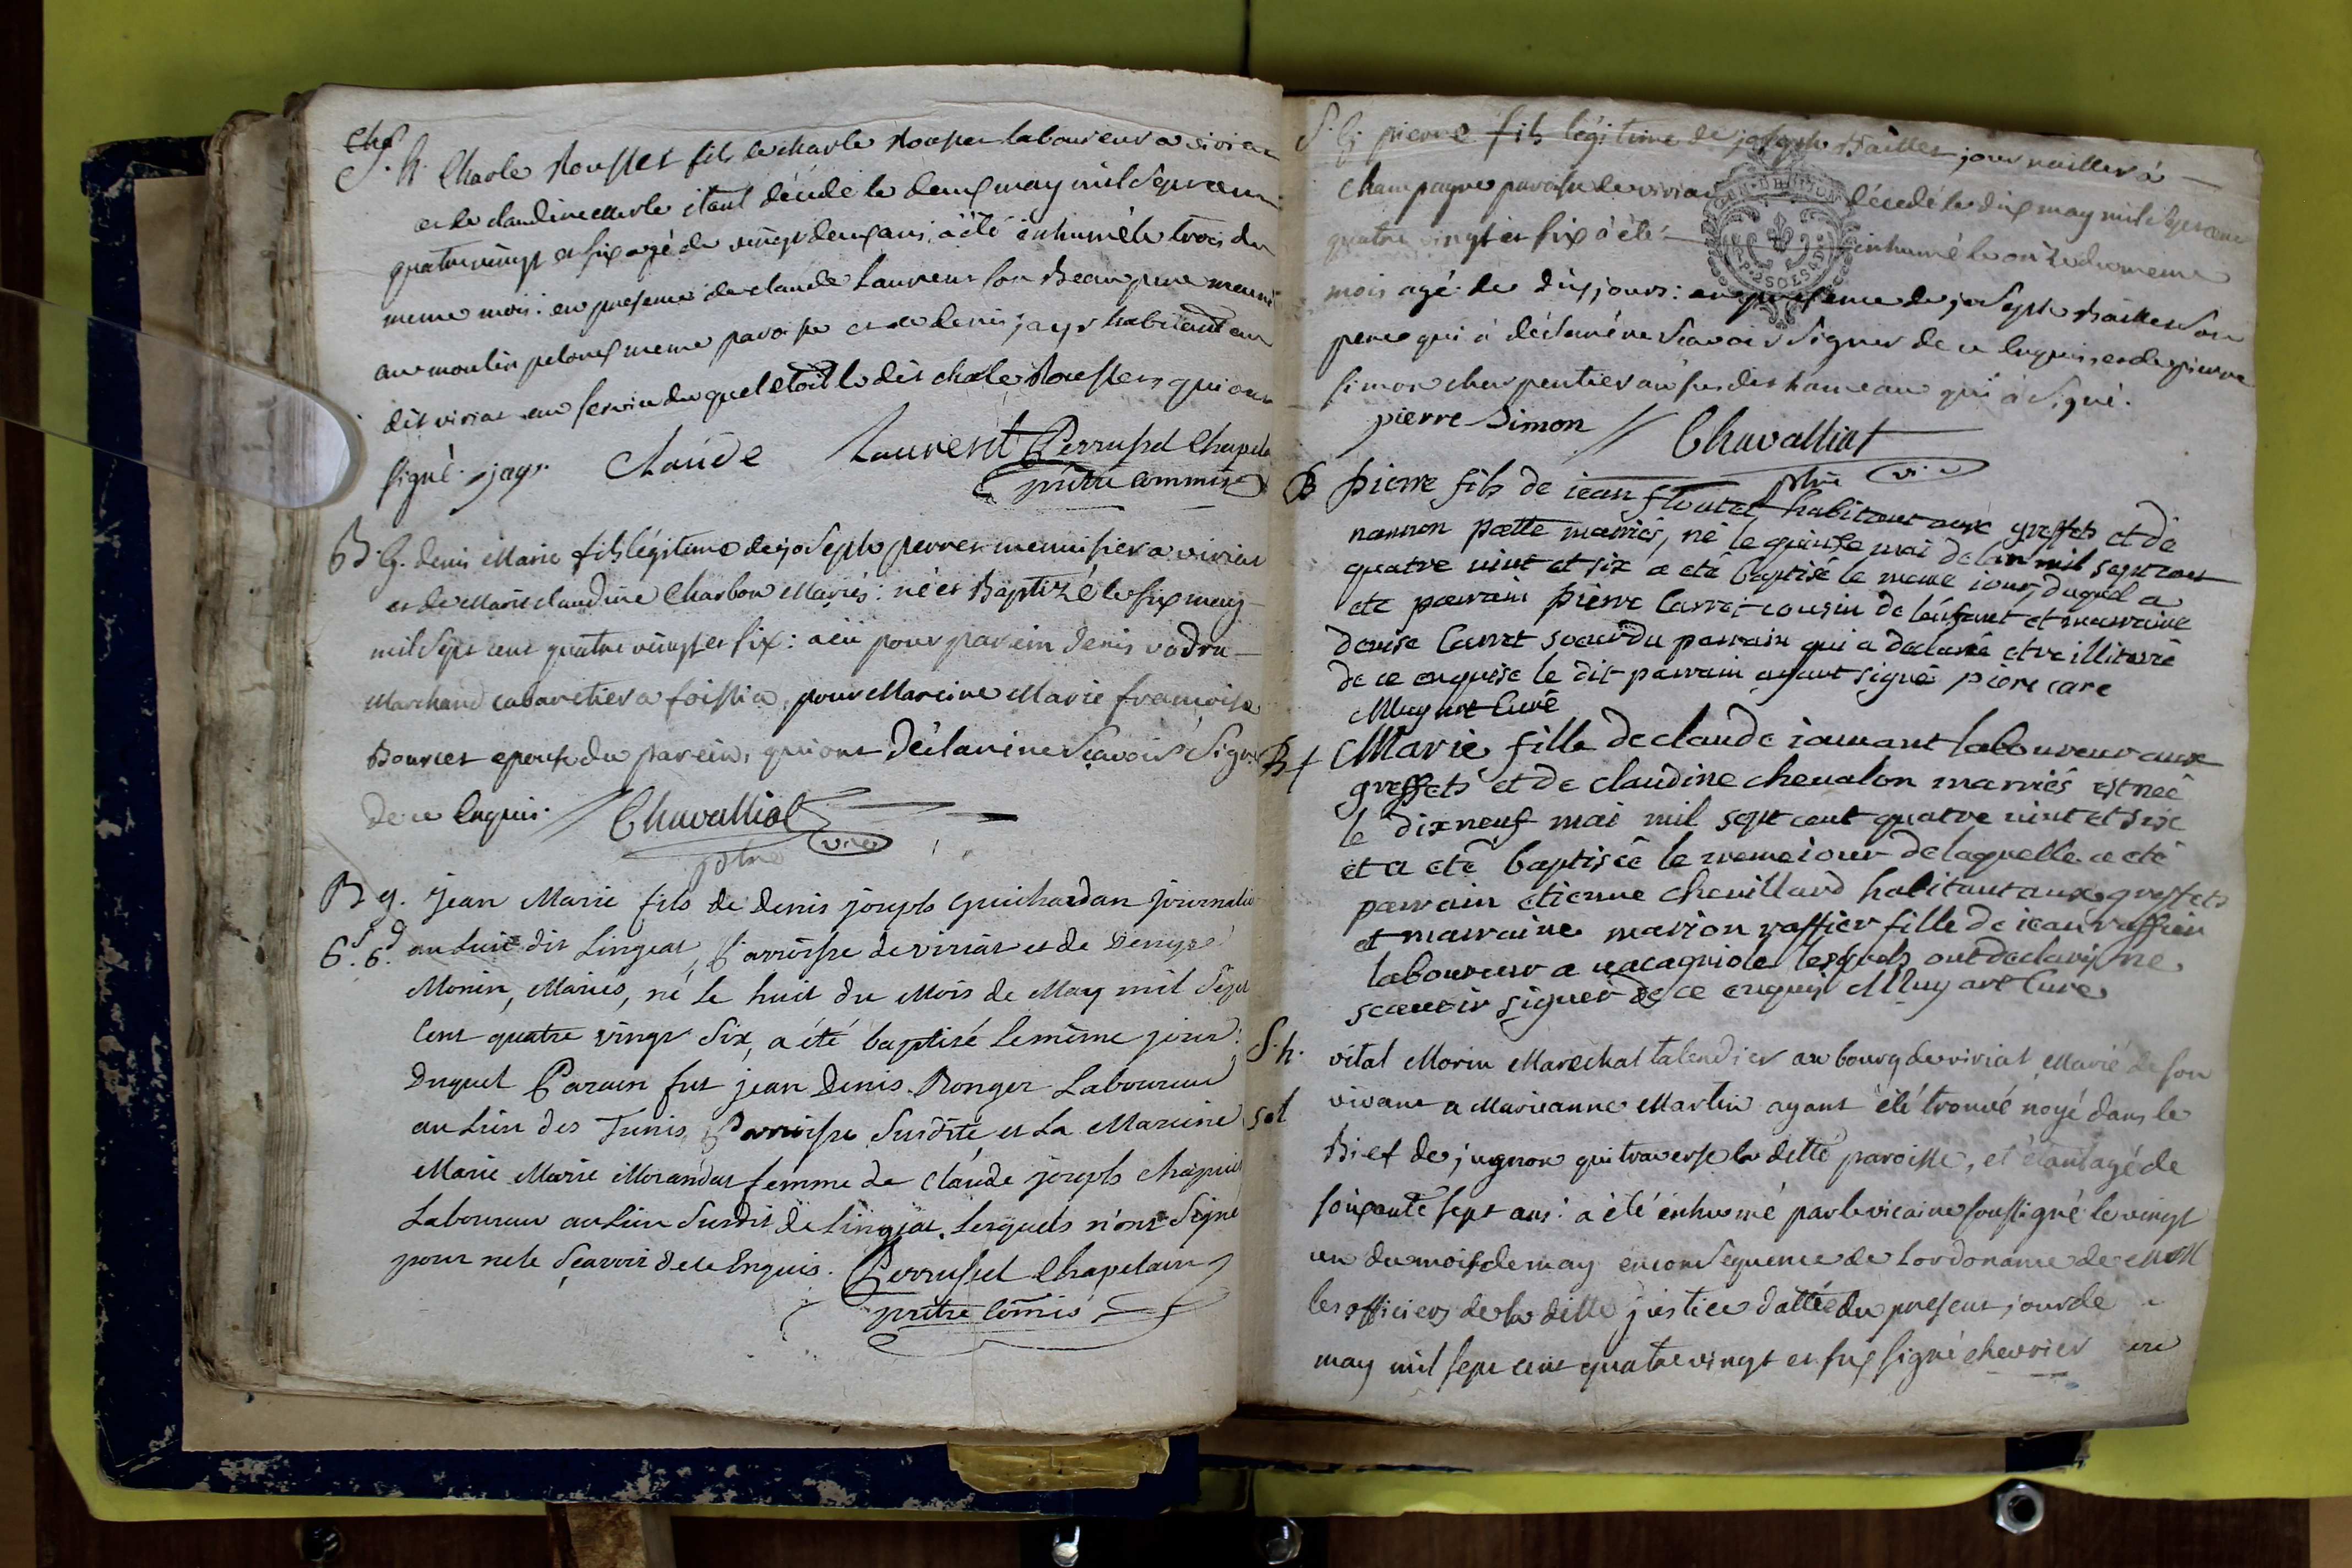 S. h. Charle Rousset fils de charle Rousset laboureur a viriat
et de claudine Merle étant décédé le deux may mil Sept cent
quatrevingt et six agé de vingt deux ans, à été inhumé le trois du
meme mois: en presence de claude Laurent son Beaupere meunié
au moulin meme paroisse et de denis jayr habitant au
dit viriat au service du quel etoit le dit chale Roussets qui ont
signé. jayr. Claude Laurent Perruset Chapelain
prêtre commis
B. g. denis Marie fils légitime de joseph perret menuisier a viriat
et de Marie claudine Charbon Mariés: né et Baptizé le six may
mil Sept cent quatre vingt et six: a eü pour parein denis vadru
Marchand cabaretier a foissia, pour Mareine Marie francoise
Bourcet epouse du parein, qui ont déclaré ne Sçavoir Signer
de ce Enquis. Chavalliat
ptre vic
B g. jean Marie fils de Denis joseph Guichardan journalier
G. G. au Lieu dit Lingeat, Parroisse de viriat et de Denyse
Monin, Mariés, né Le huit du Mois de May mil Sept
Cent quatre vingt Six, a été baptisé Le même jour:
Duquel Parain fut jean Denis Ronger Laboureur
au Lieu des Tunis, Parroisse Susdite et La Mareine
Marie Marie Morandat femme de Claude joseph Chapuis
Laboureur au Lieu Susdit de Lingeat. Lesquels n'ont Signé
pour ne le Sçavoir de ce Enquis. Perruset Chapelain
prêtre Commis
S. G. pierre fils légitime de joseph Baillet journaillier à
Champagne paroisse de viriat décédé le dix may mil Sept cent
quatre vingt et six à été inhumé le onze du meme
mois agé de dix jours: en presence de joseph Baillet Son
pere qui à déclaré ne Scavoir Signer de ce Enquis, et de pierre
Simon charpentier au sus dit hameau qui à Signé.
pierre Simon Chavalliat
ptre vic
B pierre fils de iean floutet habitant aux greffets et de
nannon paette marriés, né le quinze mai de lan mil sept cent
quatre vint et six a eté baptisé le meme iour, duquel a
eté parrain pierre Carret cousin de lenfant et marraine
denise Carret soeur du parrain qui a declaré etre illiterée
de ce enquise le dit parrain ayant signé piere care
Muynet Curé
B f Marie fille de claude iamant laboureur aux
greffets et de claudine chevalon marriés est neé
le dixneuf mai mil sept cent quatre vint et six
et a eté baptiseé le meme iour de laquelle a eté
parrain etienne chevillard habitant aux greffets
et marraine marion raffier fille de iean raffier
laboureur a lesquels ont declaré ne
scavoir signer de ce enquis Muynet Cure
S. h. vital Morin Marechal talendier au bourg de viriat Marié de son
vivant a Marieanne Martin ayant été trouvé noyé dans le
Bief de jugnon qui traverse la ditte paroisse, et étant agé de
soixante sept ans: a été inhumé par le vicaire soussigné le vingt
un du mois de may en consequence de Lordonance de MM
les officiers de la ditte justice dattée du present jour de
may mil sept cent quatre vingt et six signé chevrier